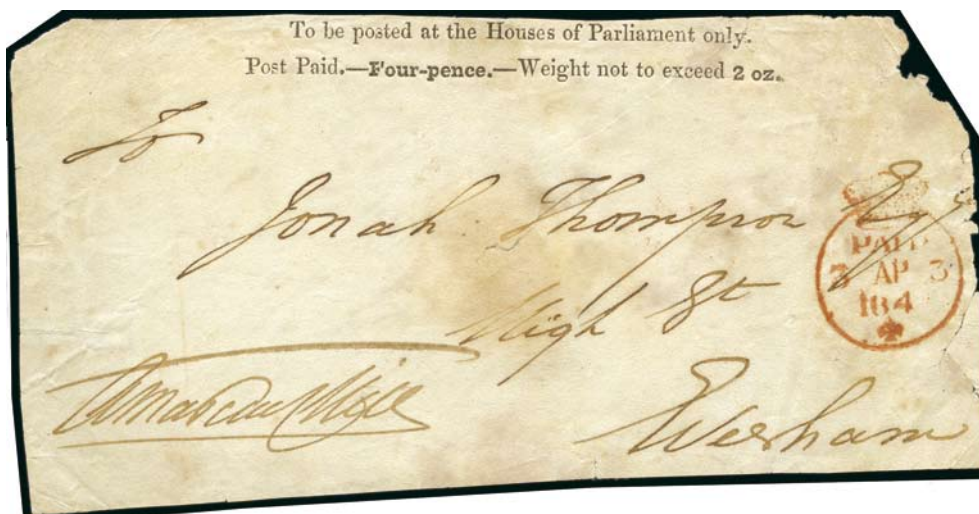 To be posted at the Houses of Parliament only.
Post Paid.—Four-pence.—Weight not to exceed 2 oz.
To
Jonah Thompson Esqr
High St
Evesham
PAID
3 AP 3
184